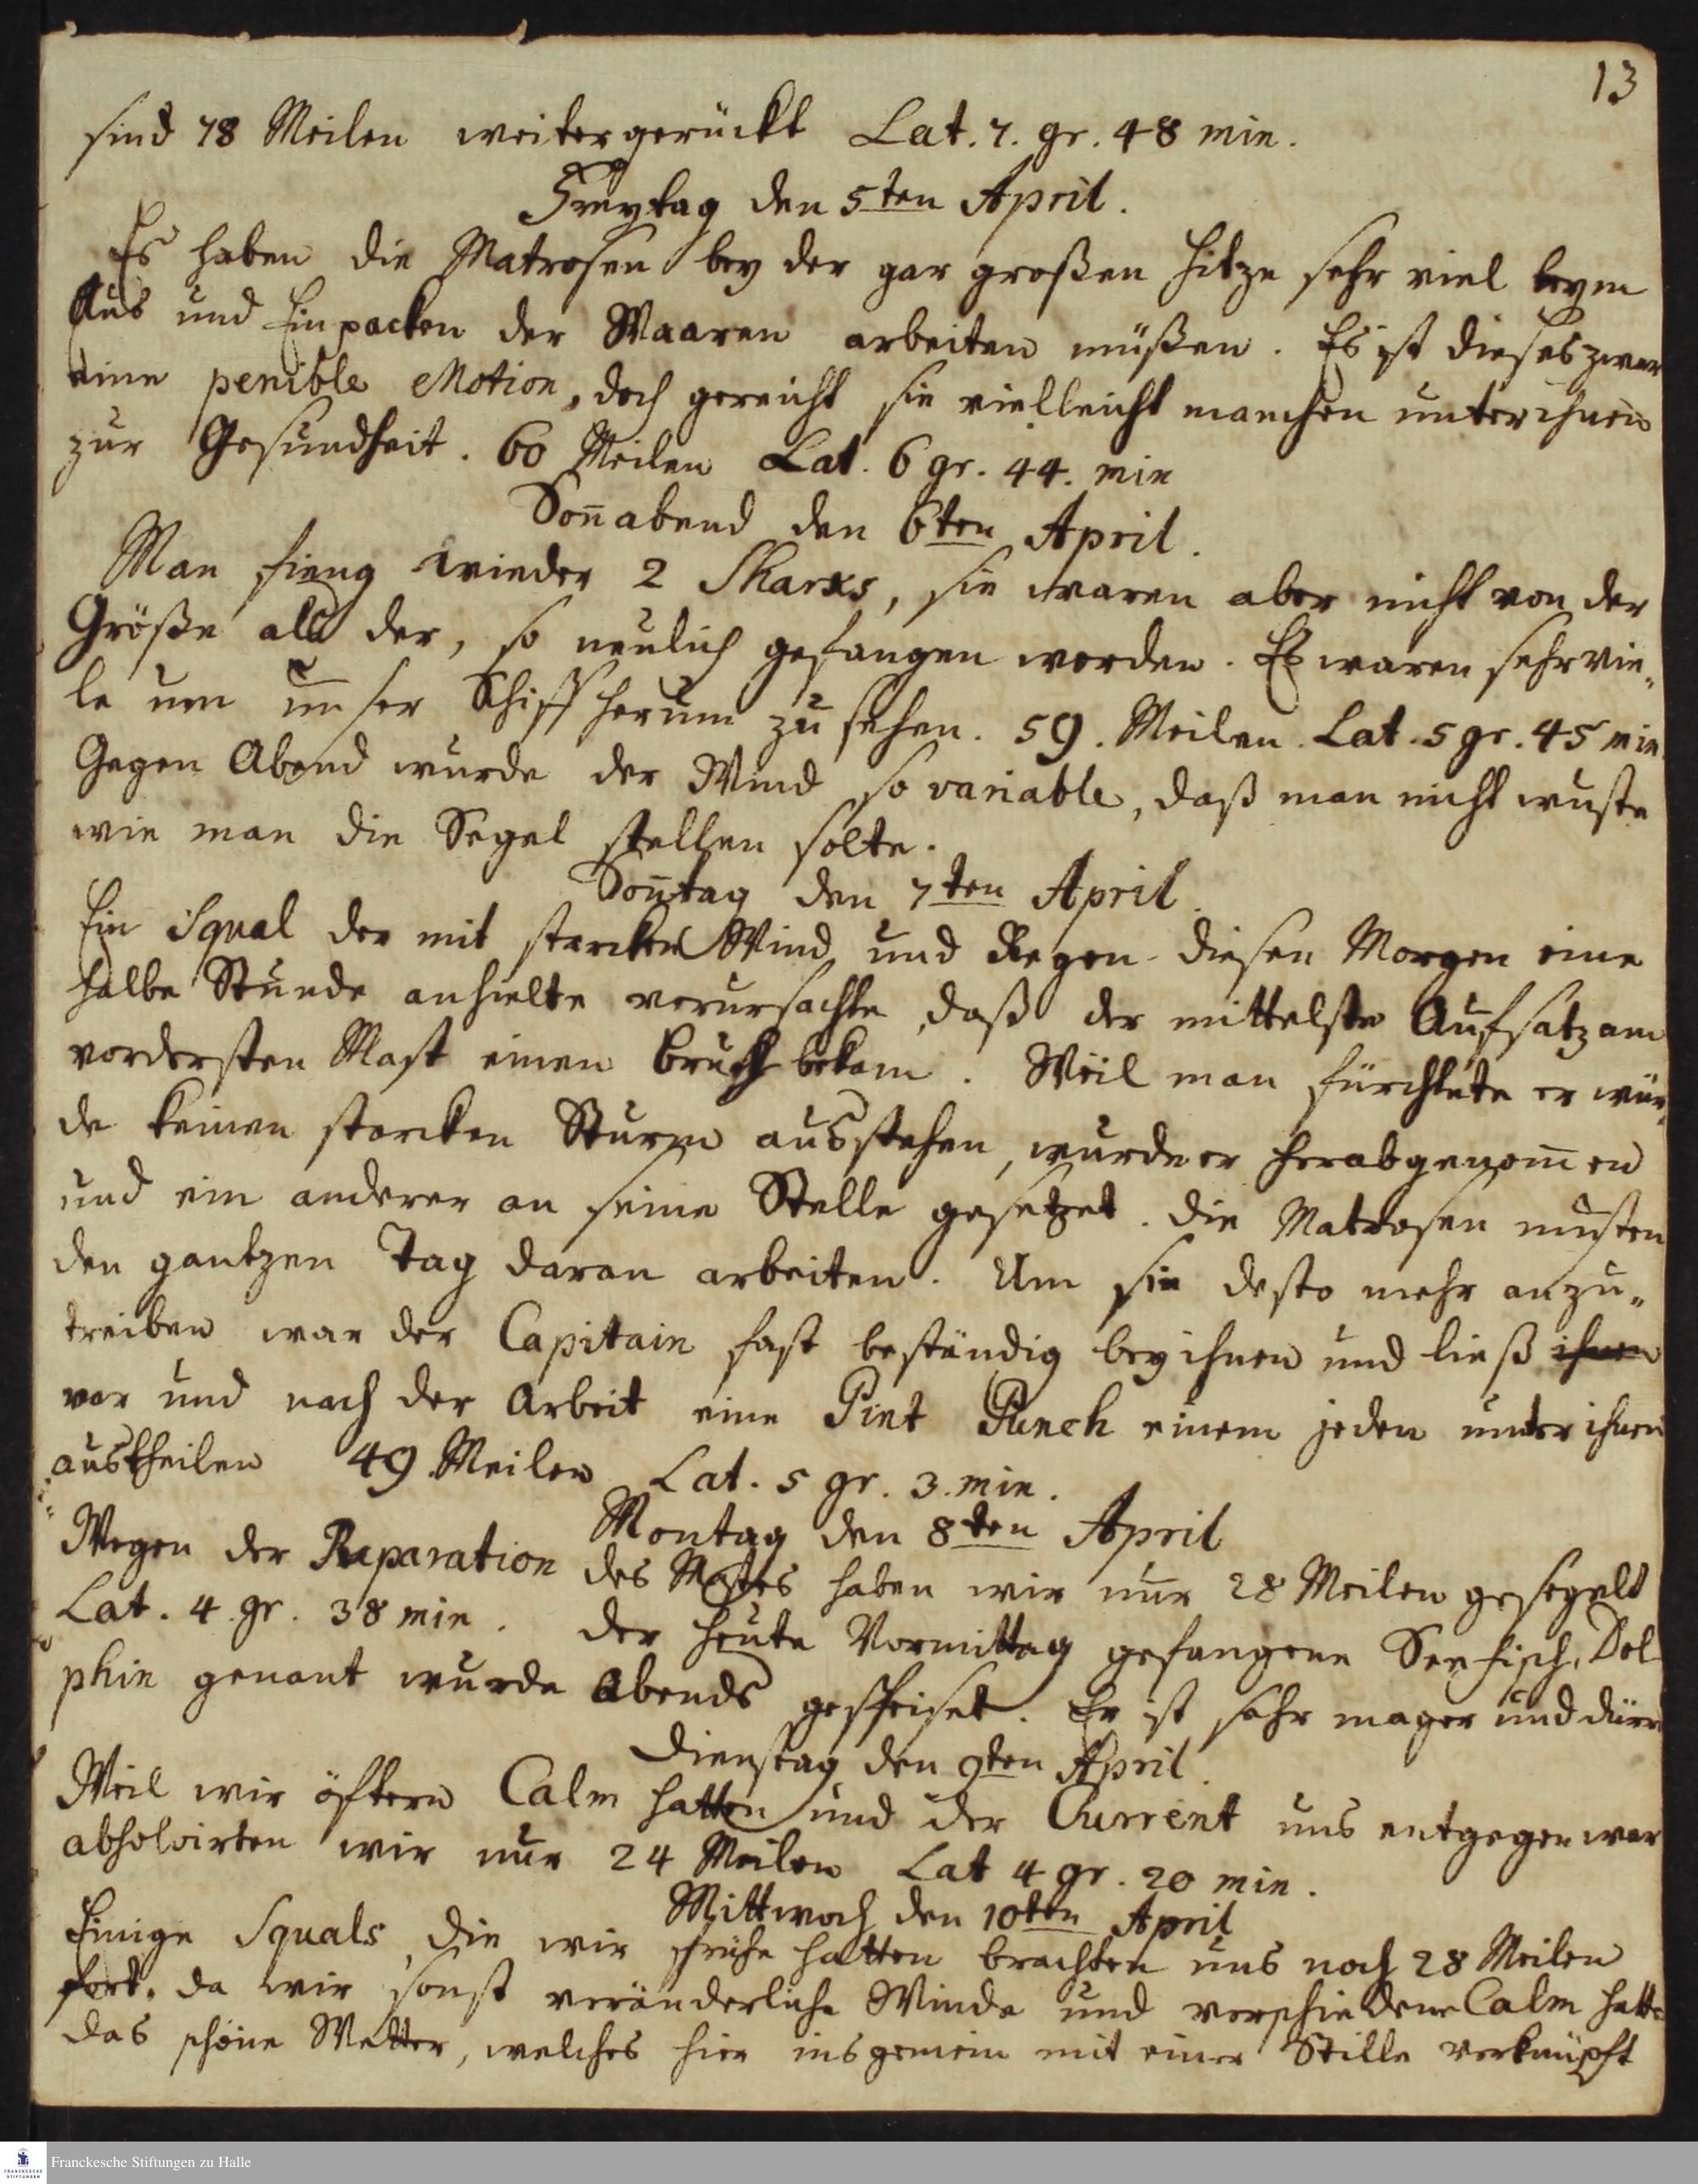 13
sind 78 Meilen weitergerückt Lat. 7. gr. 48 min.
Freytag den 5ten April.
Es haben die Matrosen bey der gar großen Hitze sehr viel beym
Aus und Einpacken der Waaren arbeiten müßen. Es ist dieses zwar
eine penible Motion, doch gereicht sie vielleicht manchen unter ihnen
zur Gesundheit. 60 Meilen Lat. 6 gr. 44. min
Soñabend den 6ten April.
Man fieng wieder 2 Sharks, sie waren aber nicht von der
Größe als der, so neulich gefangen worden. Es waren sehr vie„
le um unser Schiff herum zu sehen. 59. Meilen. Lat. 5 gr. 45 min.
Gegen Abend wurde der Wind so variable, daß man nicht wuste
wie man die Segel stellen solte.
Soñtag den 7ten April.
Ein Squal der mit starcken Wind und Regen diesen Morgen eine
halbe Stunde anhielte verursachte, daß der mittelste Aufsatz am
vordersten Mast einen Bruch bekam. Weil man fürchtete er wür„
de keinen starcken Sturm ausstehen, wurde er herabgenom̄en
und ein anderer an seine Stelle gesetzet. Die Matrosen musten
den gantzen Tag daran arbeiten. Um sie desto mehr anzu„
treiben war der Capitain fast beständig bey ihnen und ließ ihnen
vor und nach der Arbeit eine Pint Punch einem jeden unter ihnen
austheilen 49 Meilen Lat. 5 gr. 3. min.
Montag den 8ten April
Wegen der Reparation des Mastes haben wir nur 28 Meilen gesegelt
Lat. 4. gr. 38 min. Der heute Vormittag gefangene Seefisch, Del
phin genant wurde Abends gespeiset. Er ist sehr mager und dürr
Dienstag den 9ten April.
Weil wir öftern Calm hatten und der Current uns entgegen war
absolvirten wir nur 24 Meilen Lat 4 gr. 20 min.
Mittwoch den 10ten April
Einige Squals, die wir frühe hatten brachten uns noch 28 Meilen
fort, da wir sonst veränderliche Winde und verschiedene Calm hatt
das schöne Wetter, welches hier insgemein mit einer Stille verknüpft
Franckesche Stiftungen zu Halle
FRANCKESCHE
STIFTUNGEN